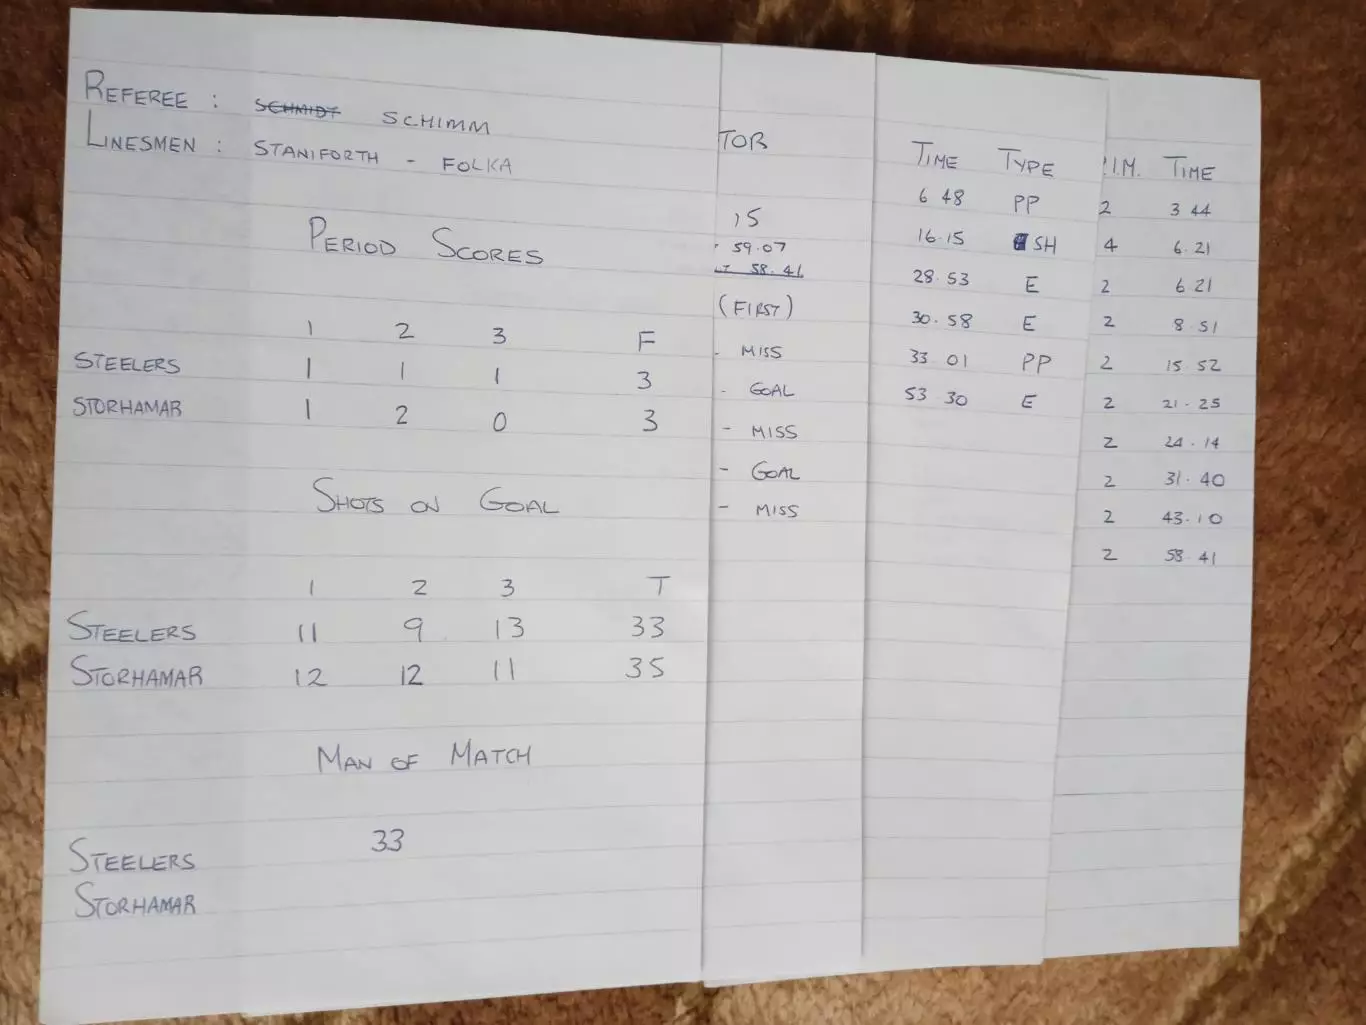 REFEREE : SCHMIDT SCHIMM
LINESMEN : STANIFORTH - FOLKA
PERIOD SCORES
1 2 3 F
STEELERS 1 1 1 3
STORHAMAR 1 2 0 3
SHOTS ON GOAL
1 2 3 T
STEELERS 11 9 13 33
STORHAMAR 12 12 11 35
MAN OF MATCH
STEELERS 33
STORHAMAR
TOR
15
59.07
58.41
(FIRST)
- MISS
- GOAL
- MISS
- GOAL
- MISS
TIME TYPE
6 48 PP
16.15 SH
28.53 E
30.58 E
33 01 PP
53 30 E
.I.M. TIME
2 3 44
4 6.21
2 6 21
2 8.51
2 15.52
2 21.25
2 24.14
2 31.40
2 43.10
2 58 41